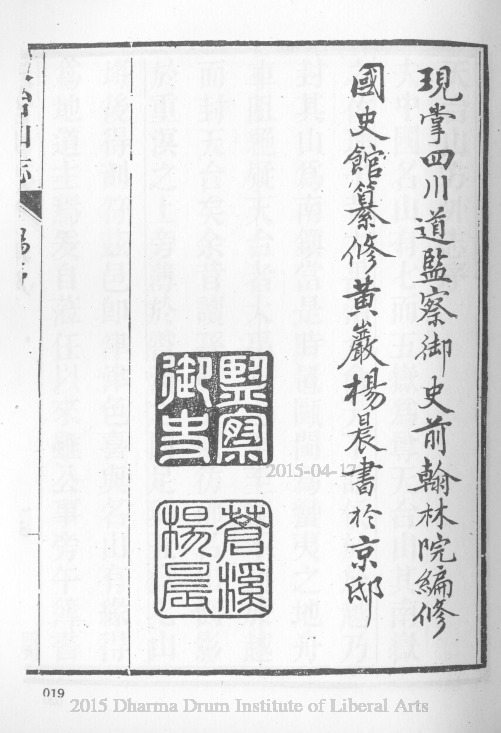 現掌四川道監察御史前翰林院編修
國史館纂修黃巖楊晨書於京邸
監察
御史
蒼溪
楊晨
2015-04-17
019
2015 Dharma Drum Institute of Liberal Arts